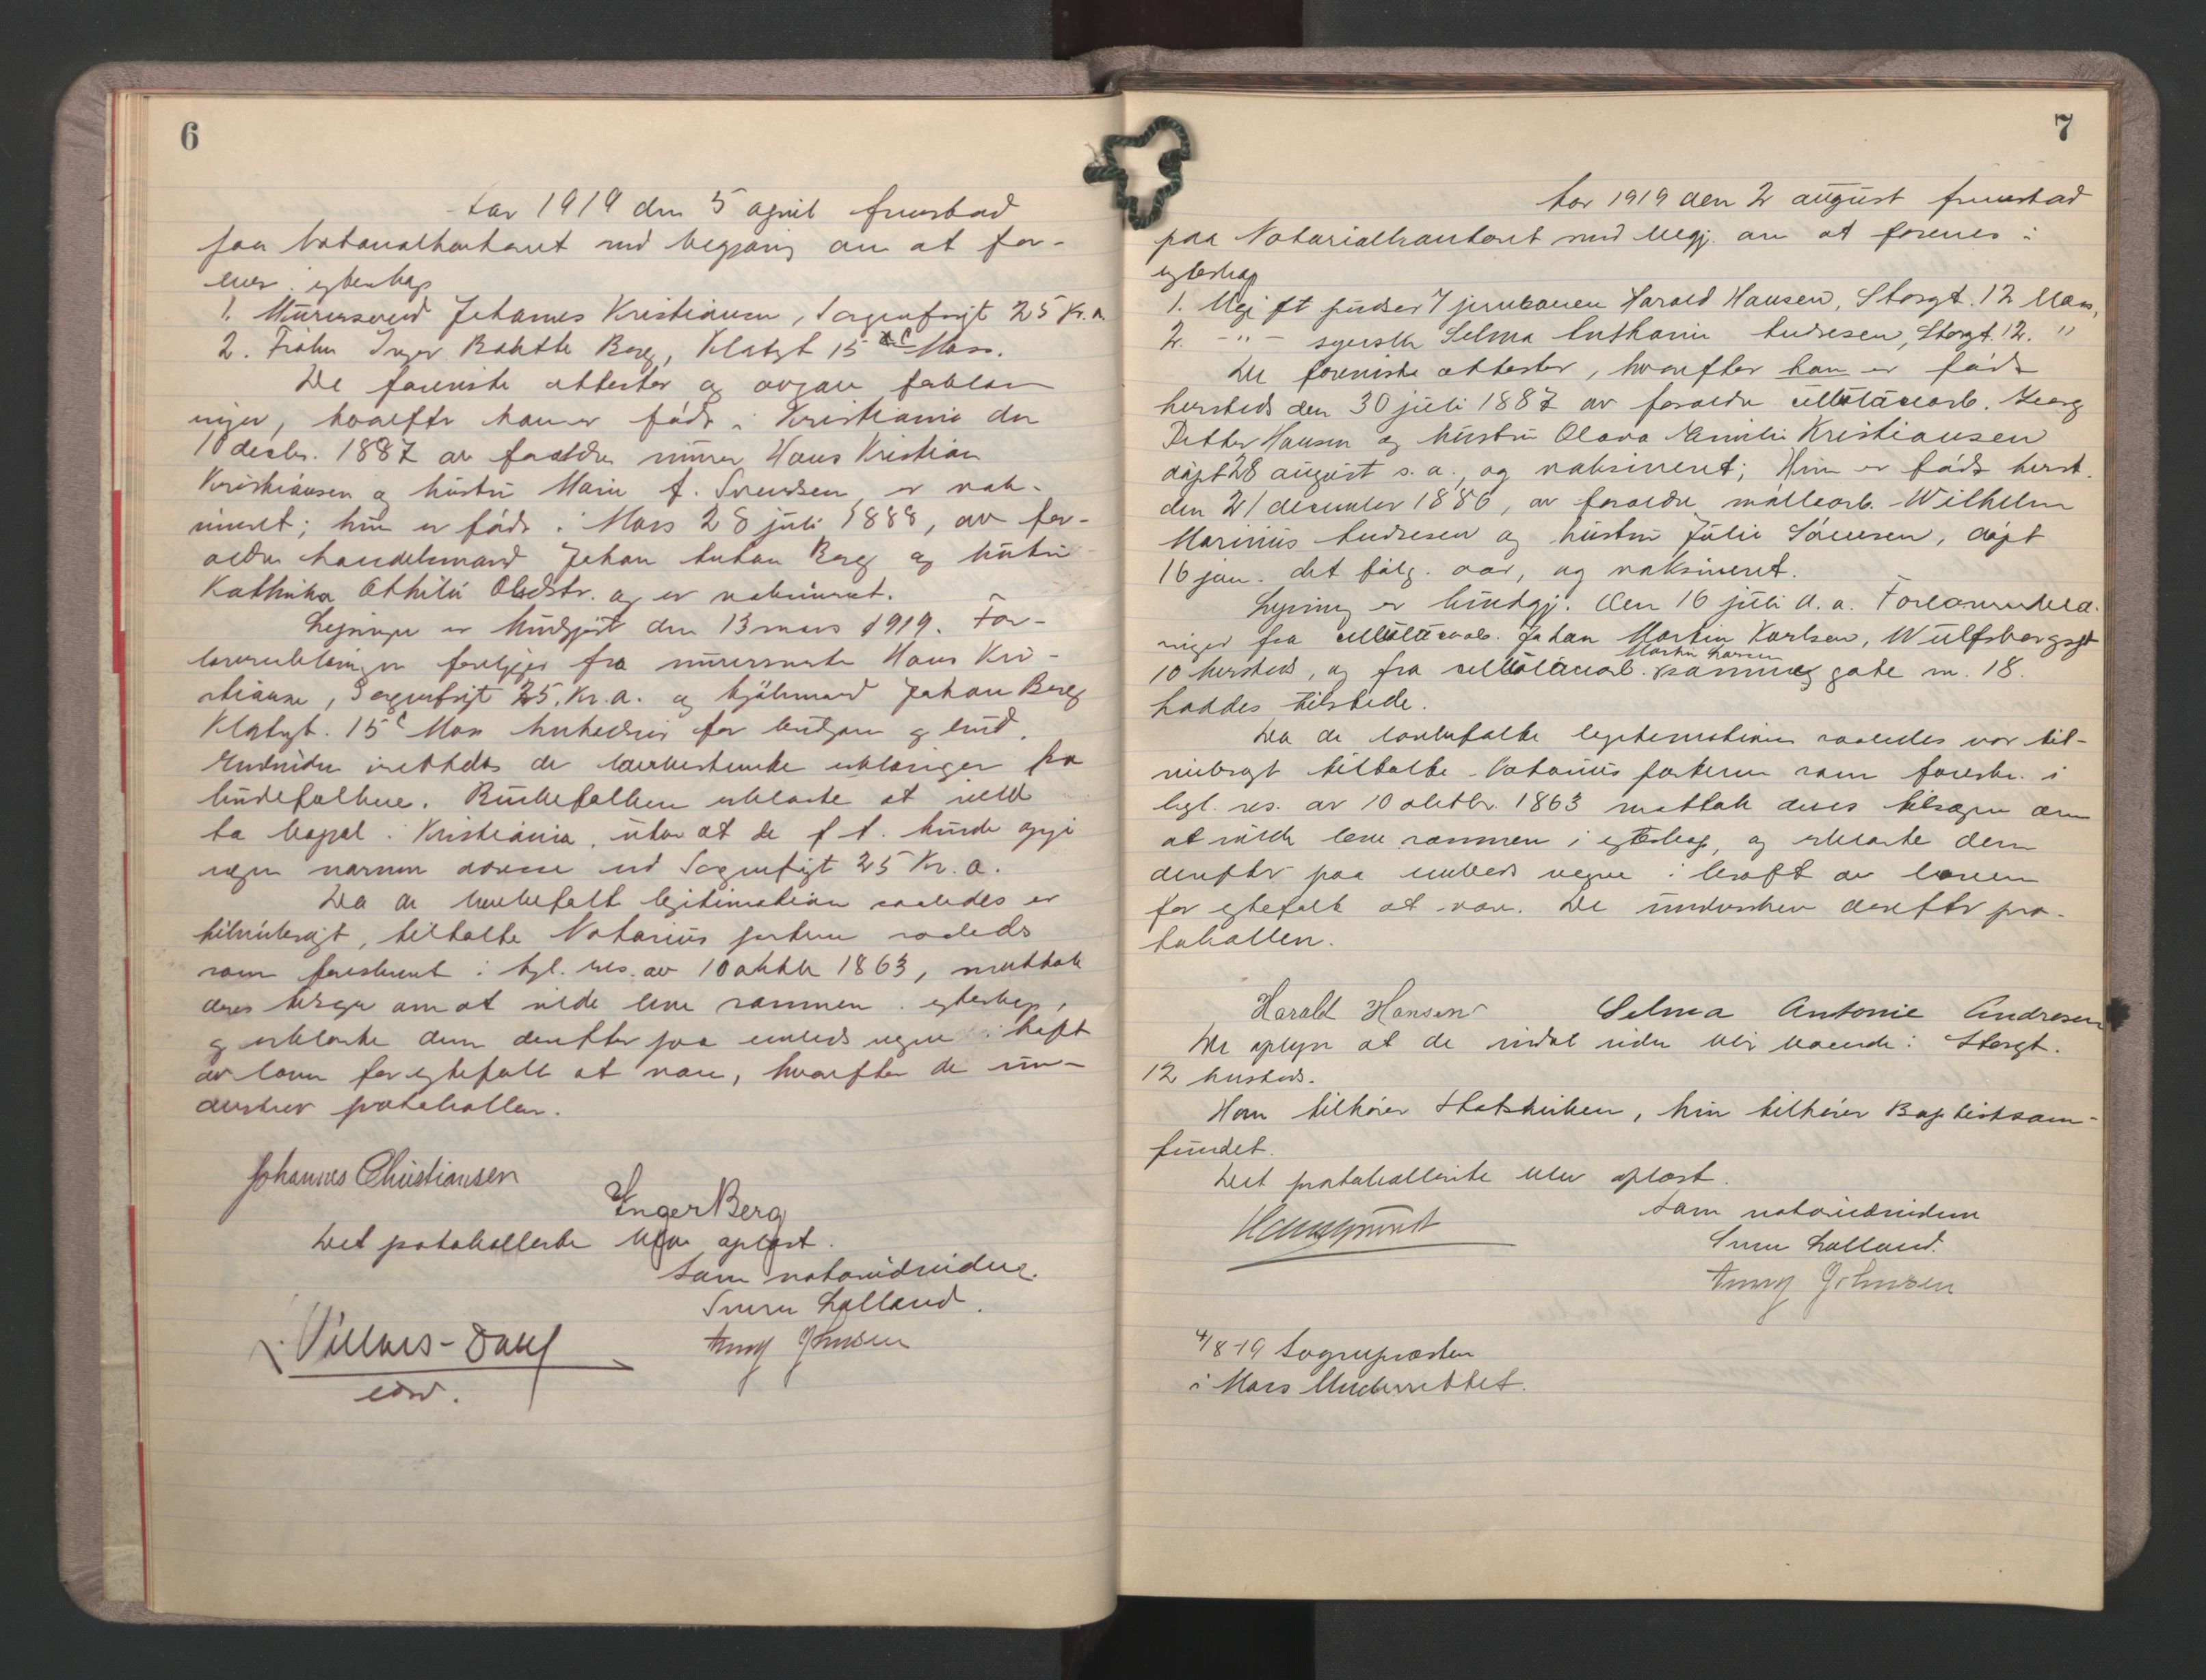 6
Aar 1919 den 5 april fremstod
paa Notarialkontoret med begjæring om at for-
enes i egteskap
1. Murersvend Johannes Kristiansen, Sorgenfrigt 25 Kr.a.
2. Frøken Inger Berg, 15 c Moss.
De foreviste attester og avgav forklar
inger, hvorefter han er født i Kristiania den
10 decbr. 1887 av forældre murer Hans Kristian
Kristiansen og hustru Marie f. Svendsen, er vak-
sineret; hun er født i Moss 28 juli 1888, av for-
ældre handelsmand Johan Anton Berg og hustru
Kathinka Othilie Olsdtr. og er vaksineret.
Lysninger er kundgjort den 13 mars 1919. For-
lovererklæringer foreligger fra murermester Hans Kri-
stiansen, Sorgenfrigt 25, Kr.a. og kjøbmand Johan Berg
15 c Moss henholdsvis for brudgom og brud.
Endvidere indhentedes de lovbestemte erklæringer fra
brudefolkene. Brudefolkene erklærte at ville
ta bopæl i Kristiania, uten at de f.t. kunde opgi
nogen nærmere adresse end Sorgenfrigt 25 Kr.a.
Da de lovbefalte legitimation saaledes er
tilveiebragt, tiltalte Notarius parterne saaledes
som foreskrevet i kgl. res. av 10 oktbr 1863, mottok
deres tilsagn om at ville leve sammen i egteskap,
og erklærte dem derefter paa embeds vegne i kraft
av loven for egtefolk at være, hvorefter de un-
derskrev protokollen.
Johannes Christiansen
Inger Berg
Det protokollerte blev oplæst.
Som notarialvidner.
Sverre Lolland.
Anny Johnsen
Villars-Dahl
const.
7
Aar 1919 den 2 august fremstod
paa Notarialkontoret med begj. om at forenes i
egteskap
1. Ugift pudser / jernbanen Harald Hansen, Storgt. 12 Moss,
2. -"- syerske Selma Anthonie Andresen, Storgt. 12. "
De foreviste attester, hvorefter han er født
hersteds den 30 juli 1887 av forældre cellulosearb. Georg
Petter Hansen og hustru Olava Emilie Kristiansen
døpt 28 august s.a., og vaksineret; Hun er født herst.
den 21 december 1886, av forældre møllearb. Wilhelm
Marinius Andresen og hustru Julie Sørensen, døpt
16 jan. det følg. aar, og vaksineret.
Lysning er kundgj. den 16 juli d.a. Forlovererklæ-
ringer fra cellulosearb. Johan Martin Karlsen, Wulfsbergsgt
10 hersteds, og fra cellulosearb. Martin Larsen gate nr. 18.
haddes tilstede.
Da de lovbefalte legitimationer saaledes var til-
veiebragt tiltalte Notarius parterne som foreskr. i
kgl. res. av 10 oktbr. 1863 mottok deres tilsagn om
at ville leve sammen i egteskap, og erklærte dem
derefter paa embeds vegne i kraft av loven
for egtefolk at være. De underskrev derefter pro-
tokollen.
Harald Hansen Selma Antonie Andresen
De oplyse at de indtil videre blir boende i Storgt.
12 hersteds.
Han tilhører Statskirken, hun tilhører Baptistsam-
fundet.
Det protokollerte blev oplæst.
Som notarialvidner
Sverre Lolland.
Anny Johnsen
4/8-19 Sognepresten
i Moss Underrettet.